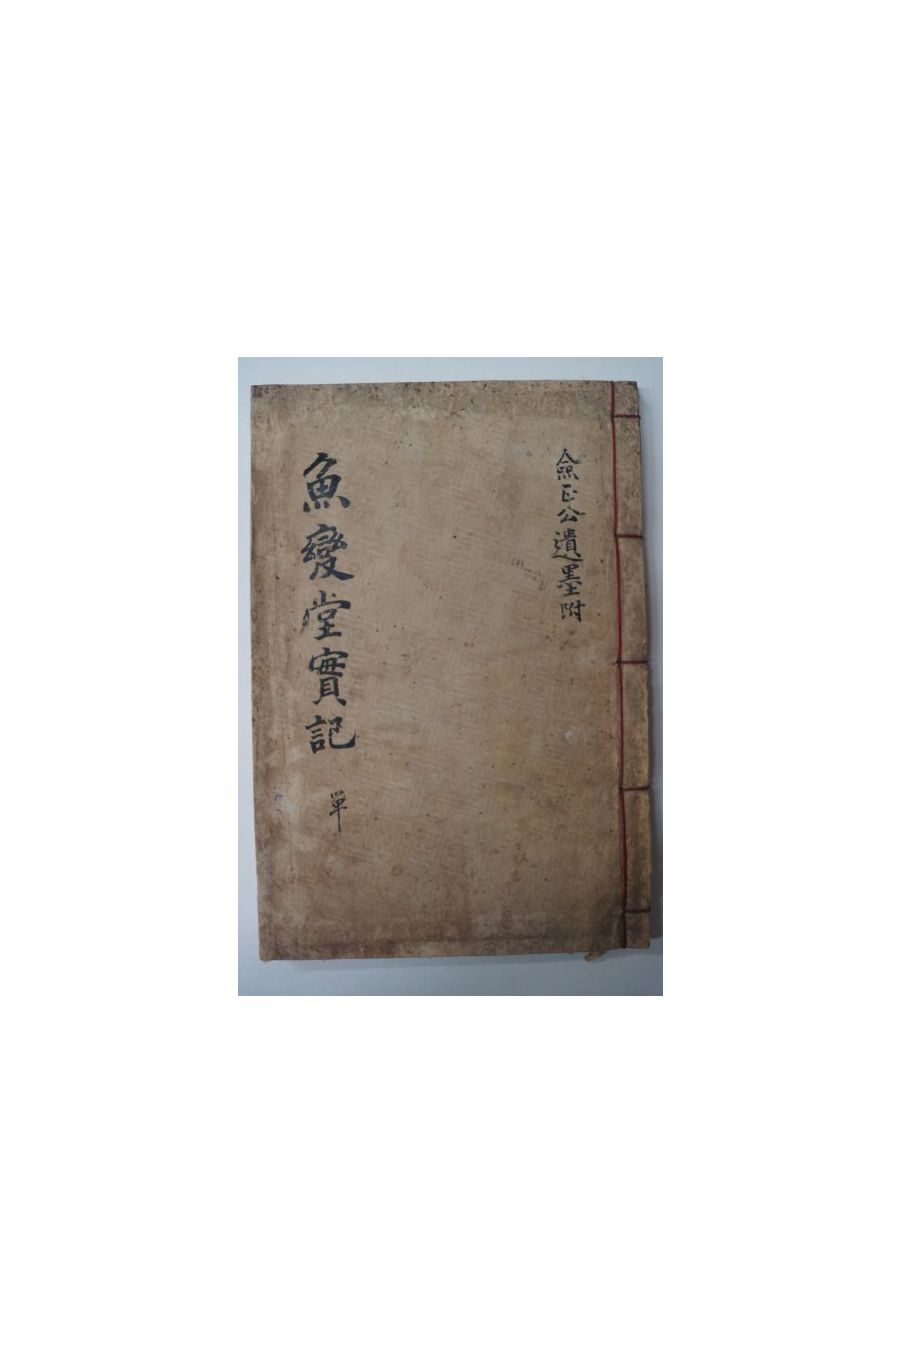 僉正公遺墨附
魚變堂實記
单